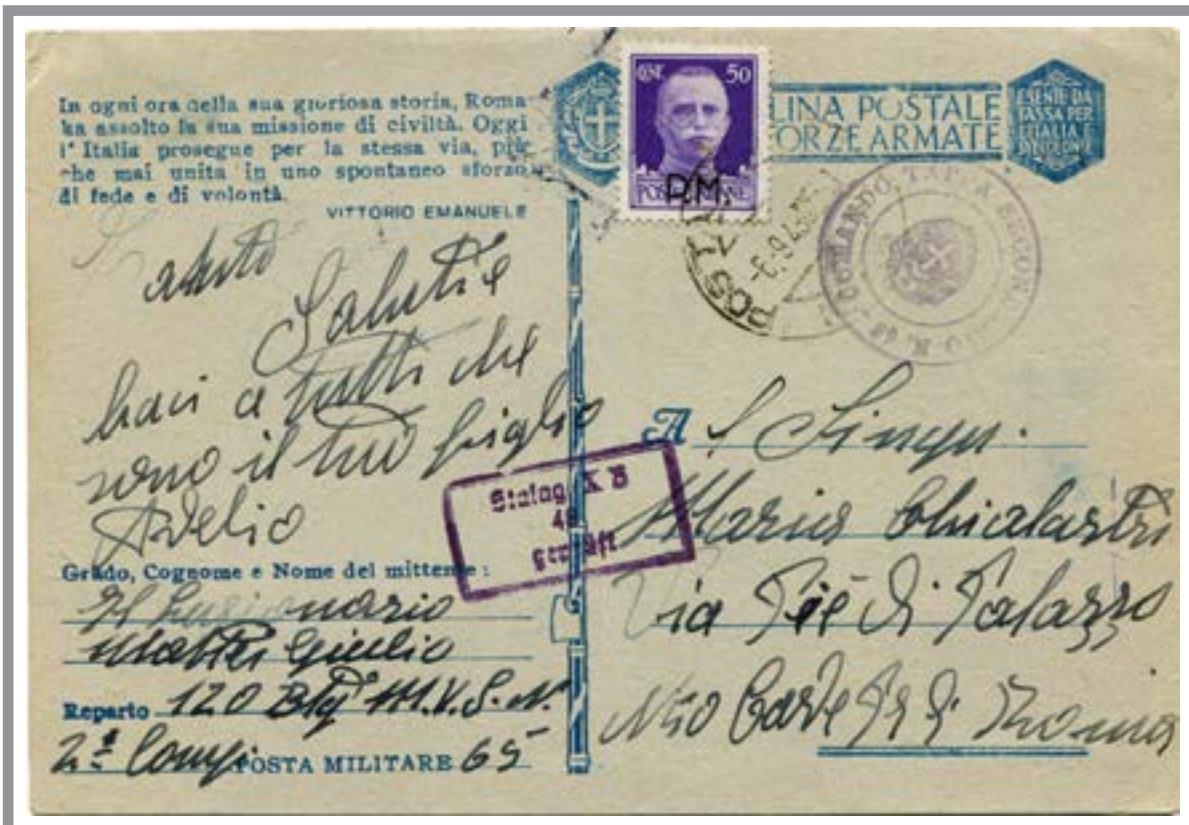 In ogni ora della sua gloriosa storia, Roma
ha assolto la sua missione di civiltà. Oggi
l'Italia prosegue per la stessa via, più
che mai unita in uno spontaneo sforzo
di fede e di volontà.
VITTORIO EMANUELE
Saluti e
baci a tutti che
sono il tuo figlio
Adelio
Grado, Cognome e Nome del mittente:
Giulio
Reparto 120 Btg M.V.S.N.
2ª Comp. POSTA MILITARE 65
CENT. 50
POSTE
P.M.
LINA POSTALE
FORZE ARMATE
ESENTE DA
TASSA PER
L'ITALIA E
POST
-6.9.43
COMANDO TAPPA
Stalag X B
A
Maria Chialastri
Via Piè di Palazzo
Roma